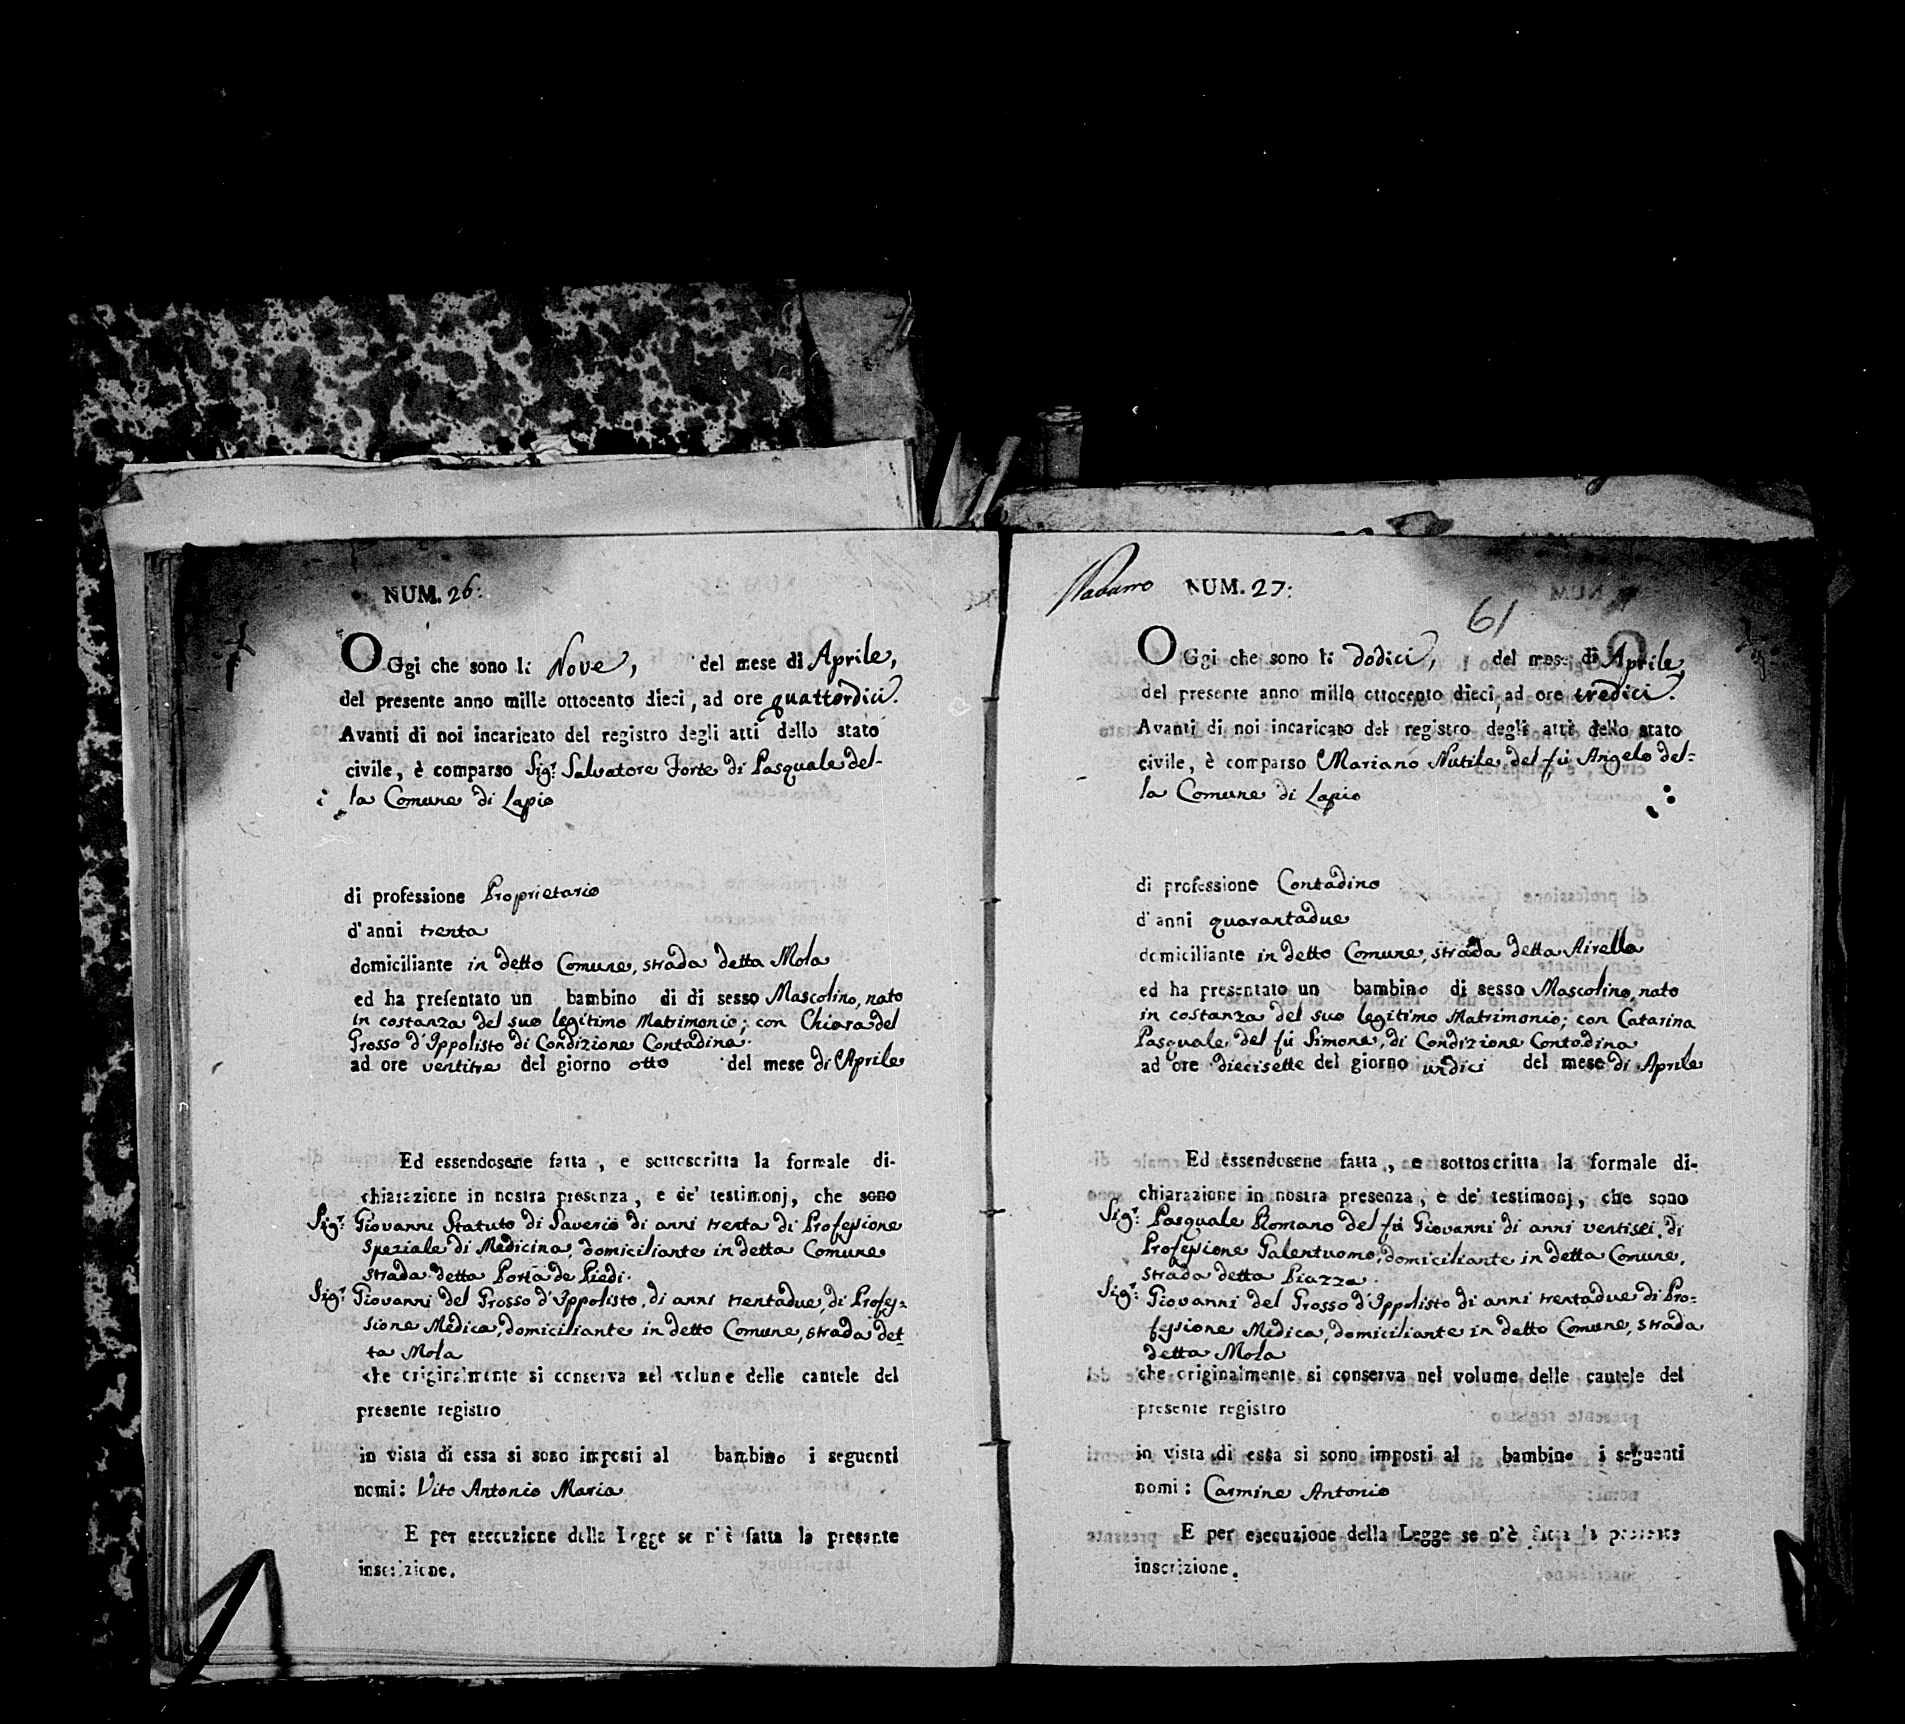 NUM. 26:
OGgi che sono li Nove, del mese di Aprile,
del presente anno mille ottocento dieci, ad ore quattordici.
Avanti di noi incaricato del registro degli atti dello stato
civile, è comparso Sigr. Salvatore Forte di Pasquale del-
la Comune di Lapio
di professione Proprietario
d'anni trenta
domiciliante in detto Comune, strada detta Mola
ed ha presentato un bambino di di sesso Mascolino, nato
in costanza del suo legitimo Matrimonio; con Chiara del
Grosso d'Ippolisto di Condizione Contadina.
ad ore ventitre del giorno otto del mese di Aprile
Ed essendosene fatta, e sottoscritta la formale di-
chiarazione in nostra presenza, e de' testimonj, che sono
Sigr. Giovanni Statuto di Saverio di anni trenta di Professione
Speziale di Medicina, domiciliante in detta Comune
strada detta Porta de Piedi.
Sigr. Giovanni del Grosso d'Ippolisto, di anni trentadue, di Profes-
sione Medica, domiciliante in detto Comune, strada det
ta Mola
che originalmente si conserva nel volume delle cautele del
presente registro
in vista di essa si sono imposti al bambino i seguenti
nomi: Vito Antonio Maria
E per esecuzione della Legge se n'è fatta la presente
inscrizione.
NUM. 27:
61
OGgi che sono li dodici, del mese di Aprile,
del presente anno mille ottocento dieci, ad ore tredici.
Avanti di noi incaricato del registro degli atti dello stato
civile, è comparso Mariano Nutile del fù Angelo del-
la Comune di Lapio
di professione Contadino
d'anni quarantadue
domiciliante in detto Comune, strada detta Airella
ed ha presentato un bambino di sesso Mascolino, nato
in costanza del suo legitimo Matrimonio; con Catarina
Pasquale del fù Simone, di Condizione Contadina
ad ore diecisette del giorno undici del mese di Aprile
Ed essendosene fatta, e sottoscritta la formale di-
chiarazione in nostra presenza, e de' testimonj, che sono
Sigr. Pasquale Romano del fù Giovanni di anni ventisei, di
Professione Galentuomo, domiciliante in detta Comune,
strada detta Piazza.
Sigr. Giovanni del Grosso d'Ippolisto di anni trentadue di Pro-
fessione Medica, domiciliante in detto Comune, strada
detta Mola
che originalmente si conserva nel volume delle cautele del
presente registro
in vista di essa si sono imposti al bambino i seguenti
nomi: Carmine Antonio
E per esecuzione della Legge se n'è fatta la presente
inscrizione.